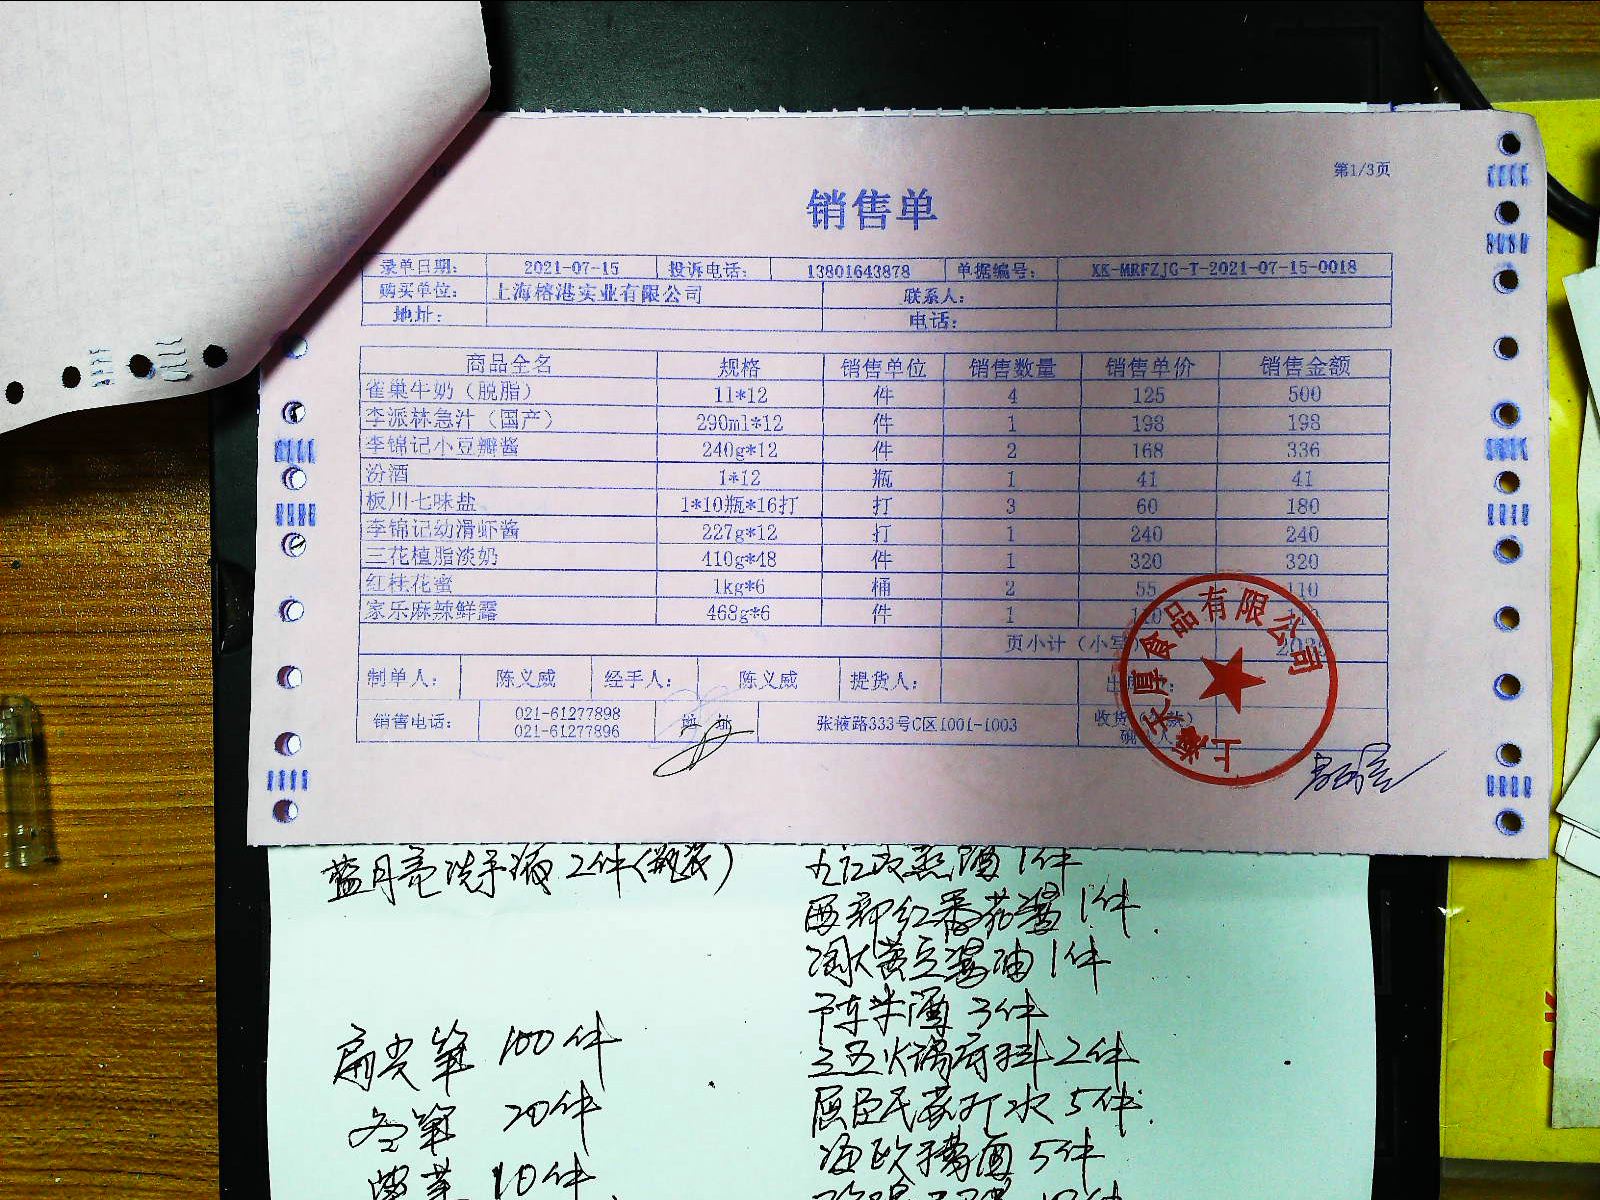 第1/3页
销售单
录单日期: 2021-07-15 投诉电话: 13801643878 单据编号: XK-MRFZJG-T-2021-07-15-0018
购买单位: 上海榕港实业有限公司 联系人:
地址: 电话:
商品全名 规格 销售单位 销售数量 销售单价 销售金额
雀巢牛奶（脱脂） 1l*12 件 4 125 500
李派林急汁（国产） 290ml*12 件 1 198 198
李锦记小豆瓣酱 240g*12 件 2 168 336
汾酒 1*12 瓶 1 41 41
板川七味盐 1*10瓶*16打 打 3 60 180
李锦记幼滑虾酱 227g*12 打 1 240 240
三花植脂淡奶 410g*48 件 1 320 320
红桂花蜜 1kg*6 桶 2 55 110
家乐麻辣鲜露 468g*6 件 1
页小计（小写）
制单人: 陈义威 经手人: 陈义威 提货人:
销售电话: 021-61277898 张掖路333号C区1001-1003
021-61277896
食品有限公司
上海
蓝月亮洗手液 2件(瓶装)
扁尖笋 100件
冬笋 20件
10件
1件
西部红番茄酱 1件
淘大黄豆酱油 1件
陈米酒 3件
2件
屈臣氏苏打水 5件
5件